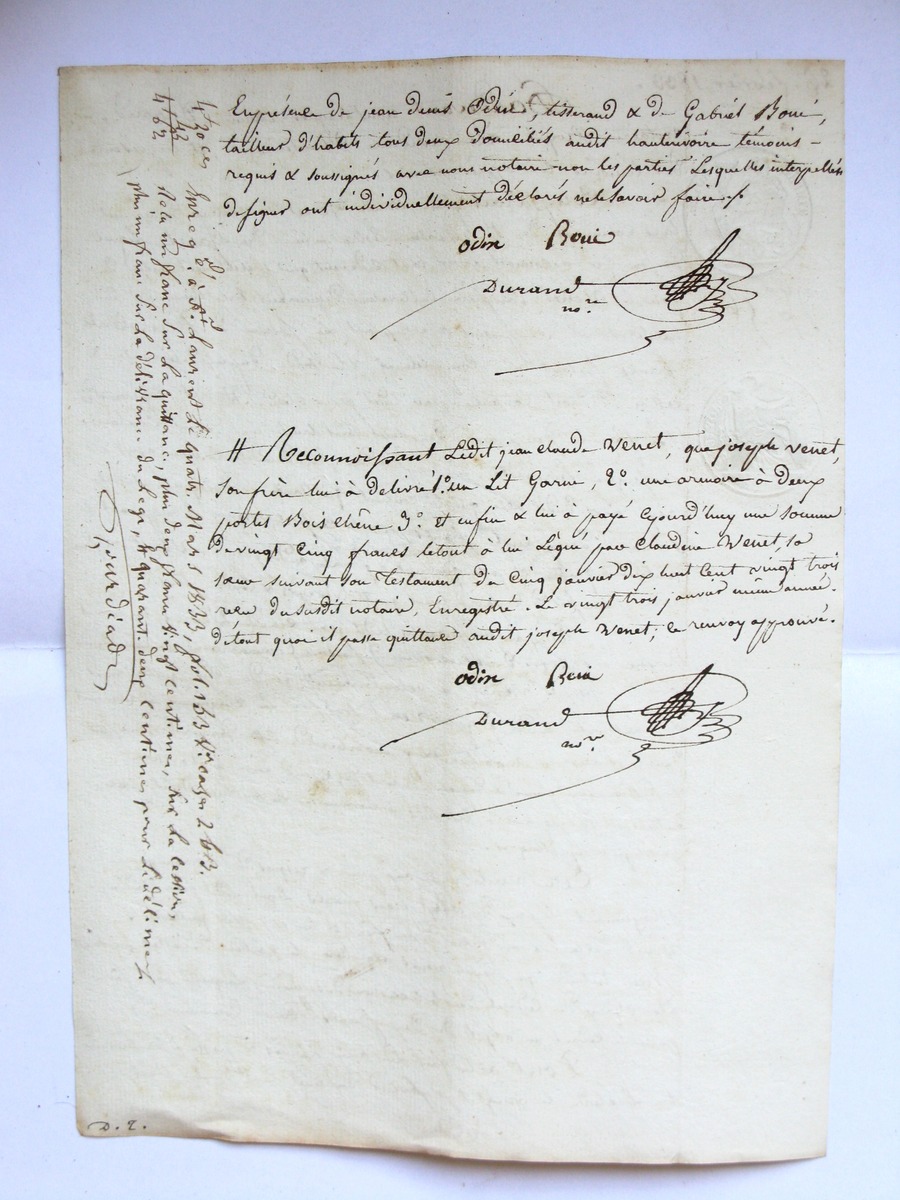 En présence de jean denis Odin, tisserand & de Gabriel Boué,
tailleur d'habits tous deux domiciliés audit hauterivoire témoins
requis & soussignés avec nous notaire non les parties Lesquelles interpellés
de signer ont individuellement déclarés ne le savoir faire /.
odin Boué
Durand
nore
# Reconnoissant Ledit jean claude Venet, que joseph venet,
son frère lui à delivré 1o. un Lit Garni, 2o. une armoire à deux
portes Bois chêne 3o. et enfin & lui à payé ajourd'huy une somme
de vingt Cinq francs le tout à lui Légué par Claudine Venet, sa
soeur suivant son Testament du Cinq janvier dix huit Cent vingt trois
recu du susdit notaire, Enregistré. Le vingt trois janvier même année.
De tout quoi il passe quittance audit joseph Venet, le renvoy approuvé.
odin Boué
Durand
nore
4f 20 ces
42
4f 62
Enreg. à St. Laurent Le quatre Mars 1833, fol. 163 Vo. cases 2 & 3.
Reçu un franc sur La quittance, plus deux francs vingt centimes, sur La cession,
plus un franc sur La délivrance du Legs, & quarante deux centimes pour Le décime /.
D. 2.